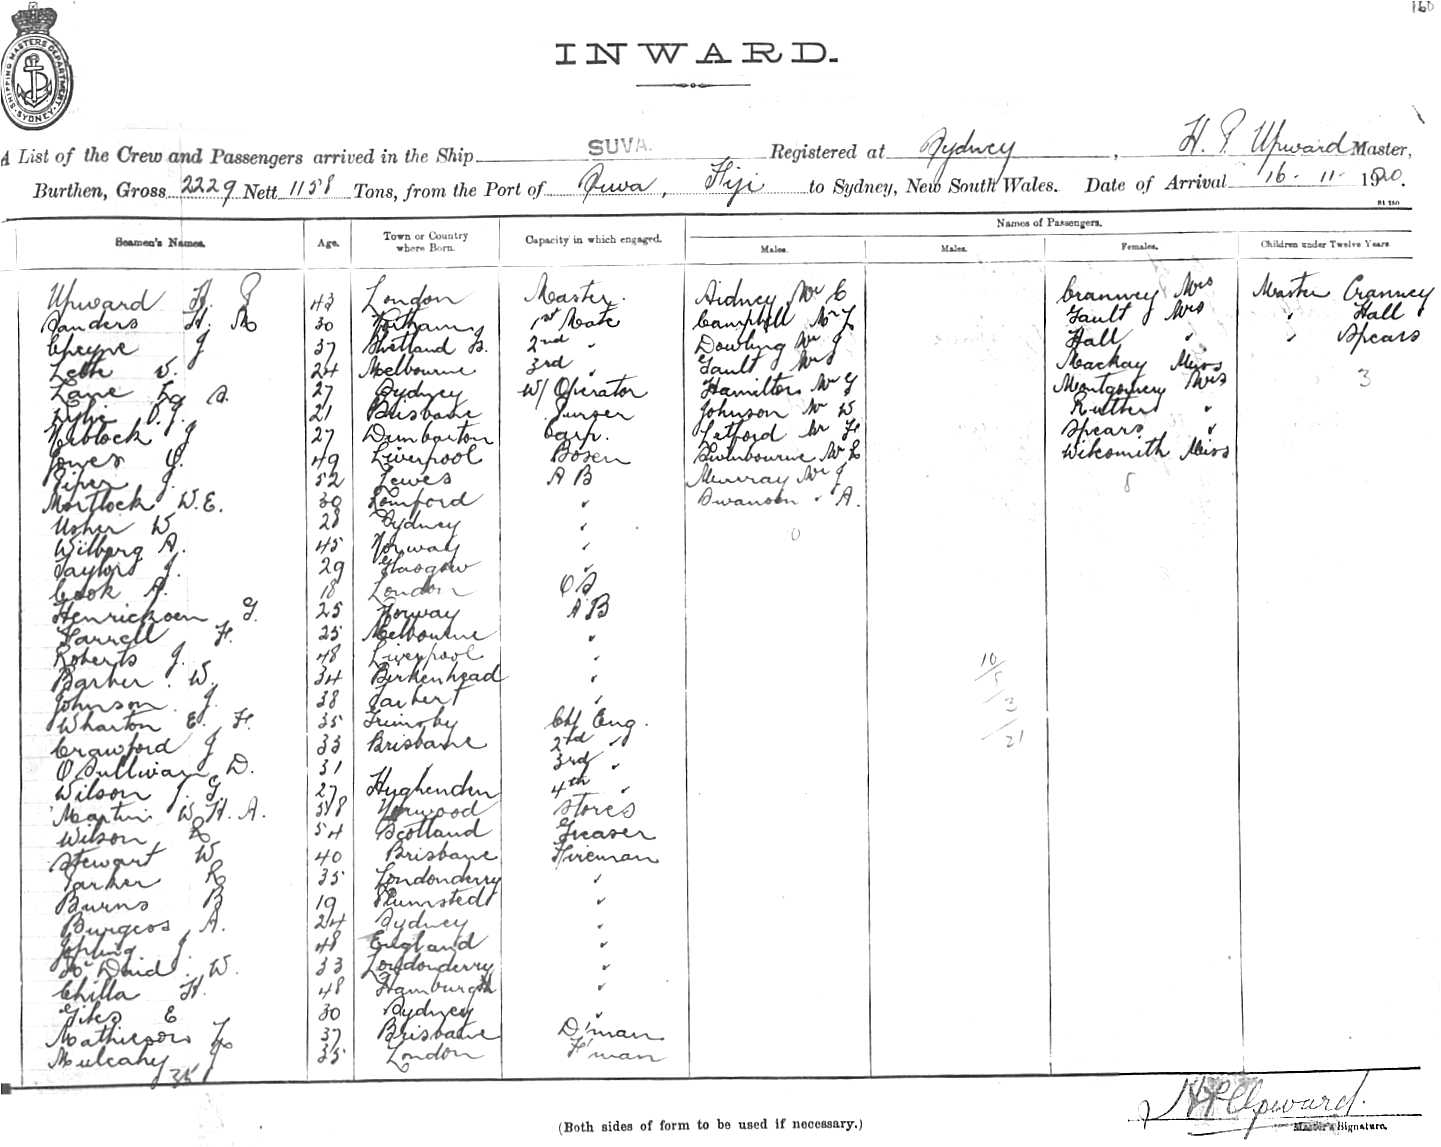 160
SHIPPING MASTERS DEPARTMENT
SYDNEY
INWARD.
A List of the Crew and Passengers arrived in the Ship SUVA. Registered at Sydney, H. P. Upward Master,
Burthen, Gross 2229 Nett 1158 Tons, from the Port of Suva, Fiji to Sydney, New South Wales. Date of Arrival 16-11-1920.
Names of Passengers.
Seamen's Names. Age. Town or Country where Born. Capacity in which engaged. Males. Males. Females. Children under Twelve Years
Upward H. P 43 London Master. Sidney Mr C Cranney Mrs Master Cranney
Sanders H. M 30 1st Mate Campbell Mr Gault Mrs " Hall
Cheyne J 37 Shetland Is. 2nd " Dowling Mr J Hall " " Spears
W. 24 Melbourne 3rd " Gault Mr Mackay Miss
Lane 27 Sydney W/ Operator Hamilton Mr G Montgomery Mrs 3
21 Brisbane Purser Johnson Mr W "
J 27 Dumbarton Carp. Letford Mr H Spears "
Jones 49 Liverpool Bosen Swinbourne Mr E Wilcsmith Miss
Piper J. 52 Lewes A B Murray Mr J 8
Mortlock W. E. 30 Romford " Swanson " A.
Usher W 28 Sydney "
Wilberg A. 45 Norway "
Taylor J. 29 Glasgow "
Cook A. 18 London O S
Henricksen G. 25 Norway A B
Farrell H. 25 Melbourne "
Roberts J. 48 Liverpool "
Barker W. 34 Birkenhead "
Johnson J. 38 Tarbert "
Wharton E. H. 35 Grimsby Chf Eng.
Crawford J 33 Brisbane 2nd "
O'Sullivan D. 31 " 3rd "
Wilson J. G. 27 Hughenden 4th "
Martin W. H. A. 58 Norwood Stores
Wilson R 54 Scotland Greaser
Stewart W 40 Brisbane Fireman
Parker R 35 Londonderry "
Burns B 19 Plumsted "
Burgess A. 24 Sydney "
Jopling J. 48 England "
McDaid W. 33 Londonderry "
Chilla H. 48 Hamburgh "
Giles E 30 Sydney "
Mathieson 37 Brisbane D'man
Mulcahy J 35 London F'man
35
10
5
3
21
H P Upward.
Master's Signature.
(Both sides of form to be used if necessary.)